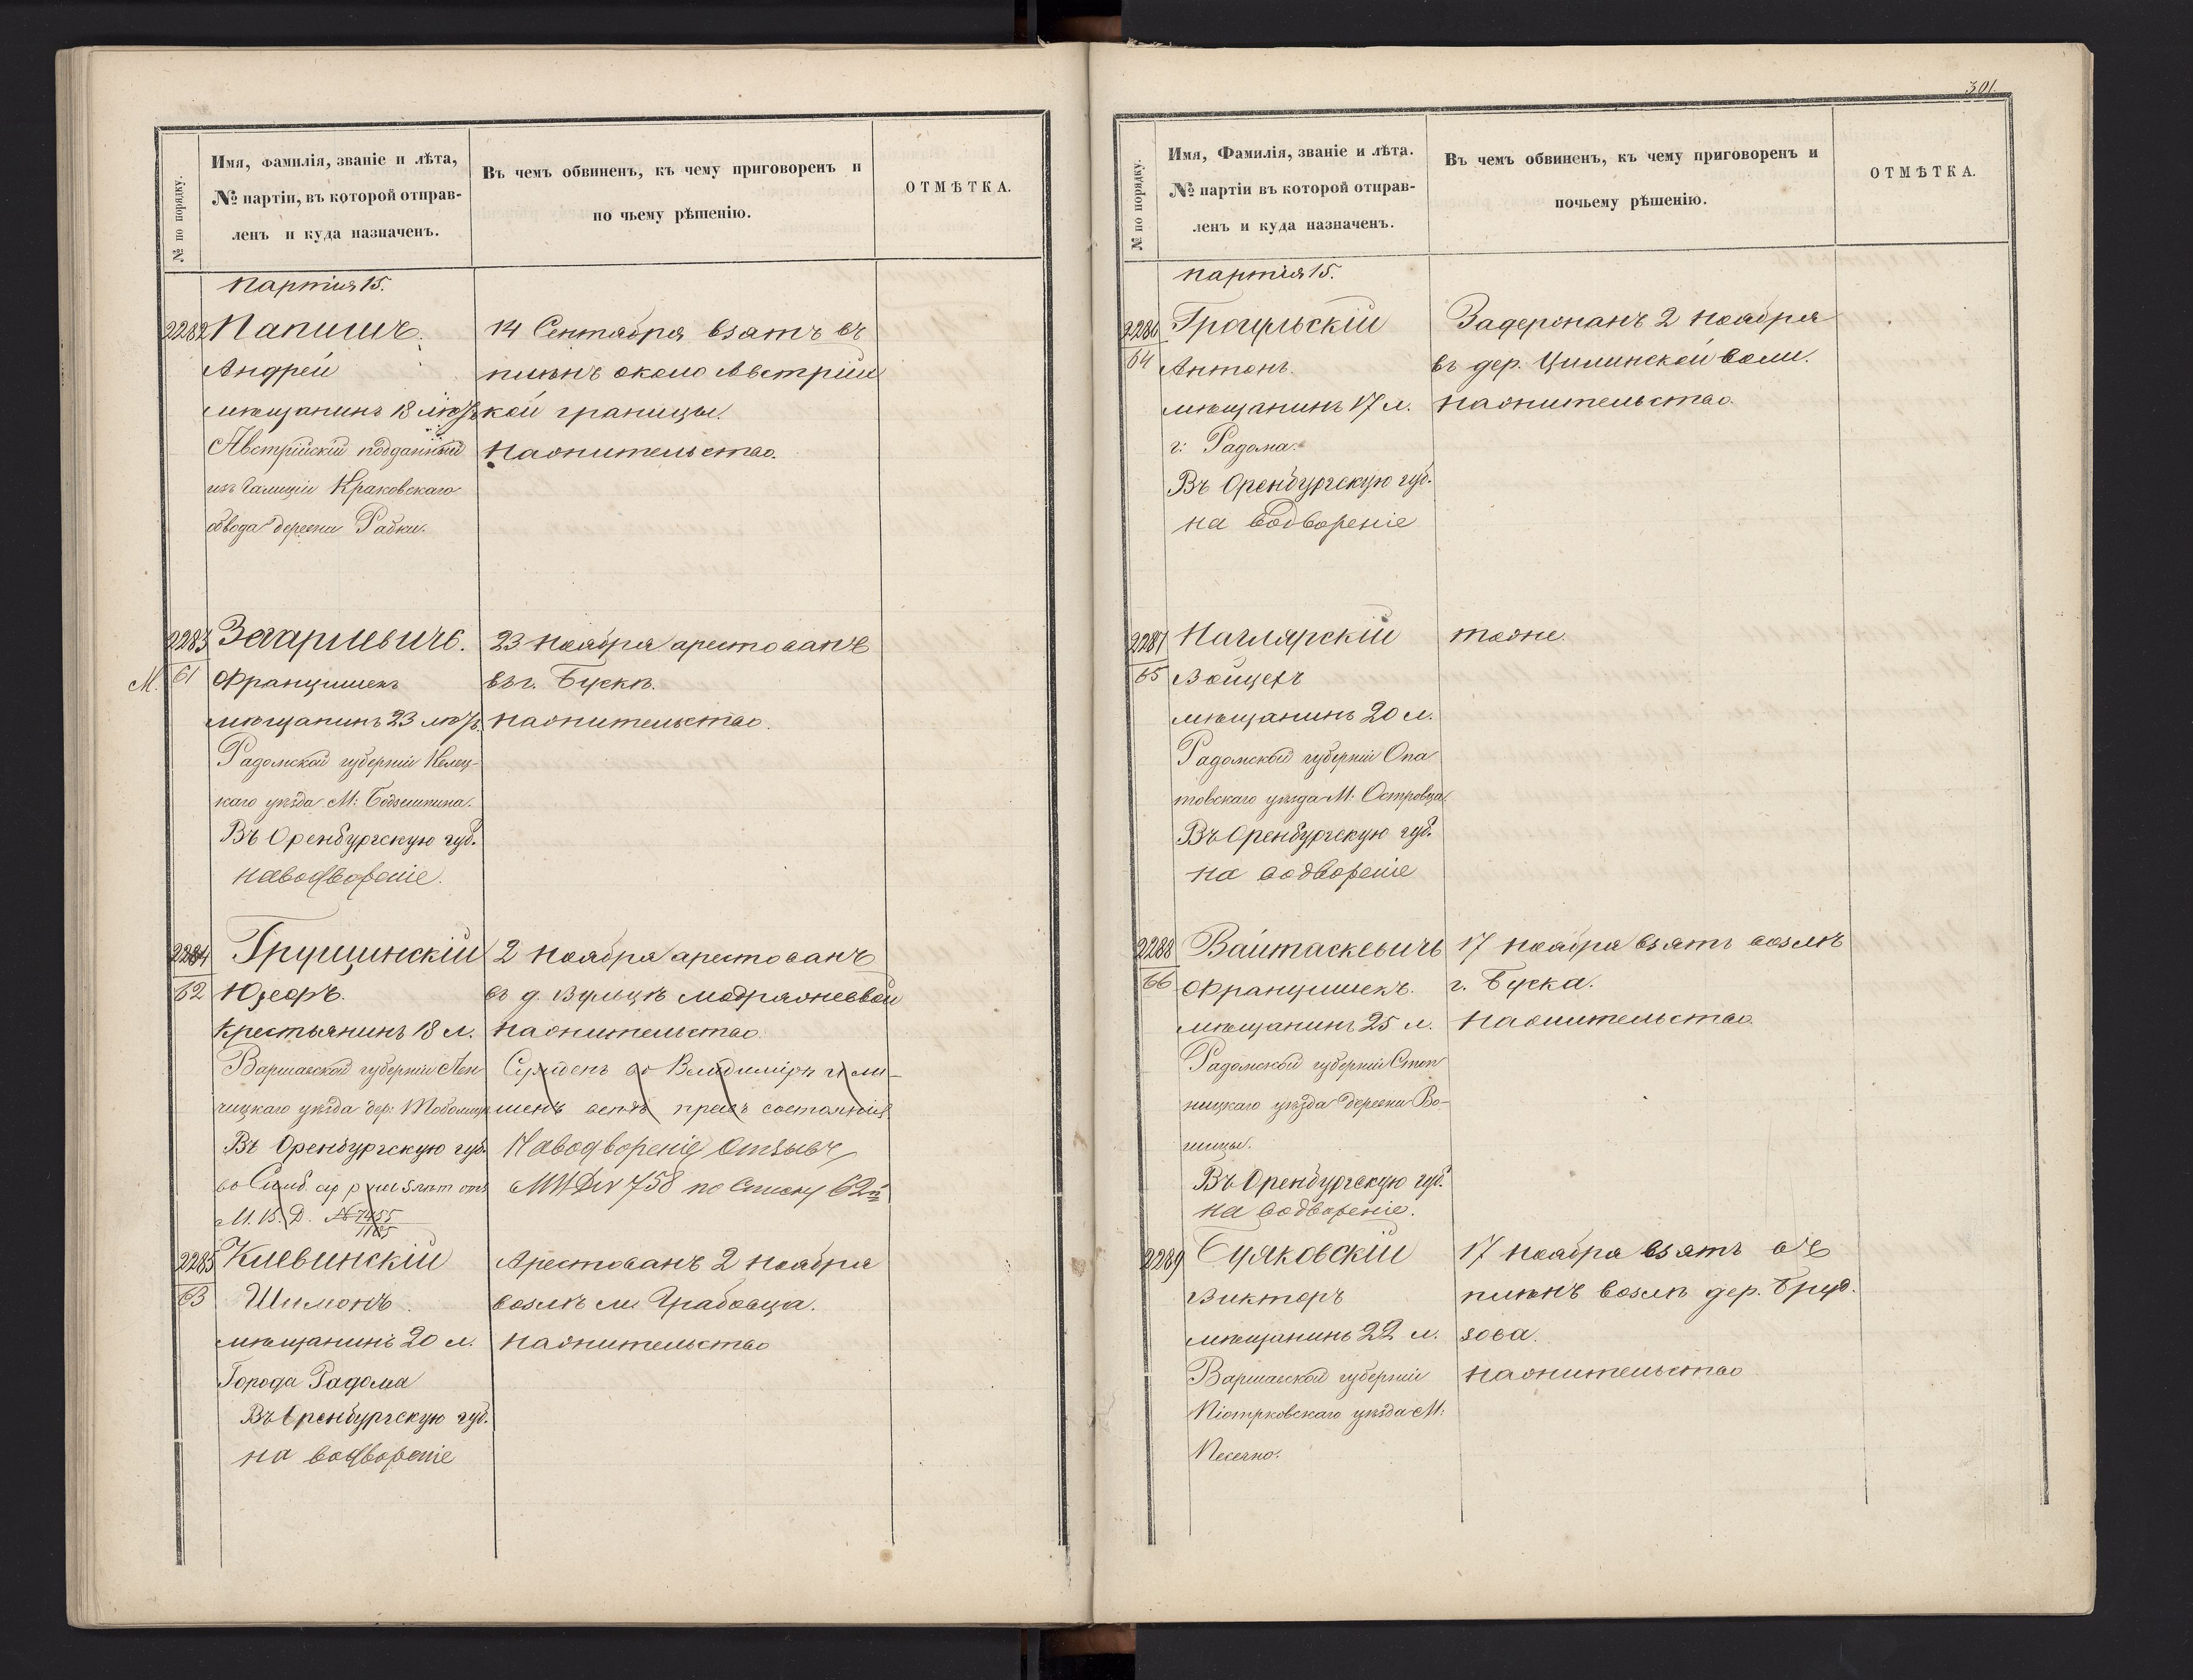 Имя, фамилія, званіе и лѣта,
№ партіи, въ которой отправ-
ленъ и куда назначенъ.
№ по порядку.
Въ чемъ обвиненъ, къ чему приговоренъ и
по чьему рѣшенію.
ОТМѢТКА.
партія 15.
2282 Папишъ
Андрей
мѣщанинъ 18 лѣтъ
Австрійскій подданный
изъ Галиціи Краковскаго
обвода деревни Рабки.
14 Сентября взятъ въ
плѣнъ около Австрій
кой границы.
Нажительство.
2283
М. 61 Францишекъ
мѣщанинъ 23 лѣтъ.
Радомской губерніи Келец-
каго уѣзда М:
Въ Оренбургскую губ.
на водвореніе.
23 ноября арестованъ
въ г. Бускѣ.
нажительство.
2284 Грущинскій
62 Юзефъ.
Крестьянинъ 18 л.
Варшавской губерніи Лен
чицкаго уѣзда дер:
Въ Оренбургскую губ.
М.В.Д. № 7455
1185
2 ноября арестованъ
въ д. Вульцѣ
нажительство
во Владиміръ и ли-
шенъ всѣхъ правъ состоянія
На водвореніе Отзывъ
МВД № 758 по Списку 62й
2285 Клевинскій
63 Шимонъ.
мѣщанинъ 20 л.
Города Радома
Въ Оренбургскую губ.
на водвореніе
Арестованъ 2 ноября
возлѣ м Грабовца.
нажительство
301.
Имя, Фамилія, званіе и лѣта.
№ партіи въ которой отправ-
ленъ и куда назначенъ.
№ по порядку.
Въ чемъ обвиненъ, къ чему приговоренъ и
почьему рѣшенію.
ОТМѢТКА.
партія 15.
2286
64 Антонъ.
мѣщанинъ 17 л.
г: Радома.
Въ Оренбургскую губ.
на водвореніе
Задержанъ 2 ноября
въ дер. Цилинской воли.
нажительство.
2287
65 Войцехъ
мѣщанинъ 20 л.
Радомской губерніи Опа
товскаго уѣзда М. Островца.
Въ Оренбургскую губ.
на водвореніе
тоже.
2288 Вайтаскевичь
66 Францишекъ.
мѣщанинъ 25 л.
Радомской губерніи Стоп
ницкаго уѣзда деревни Во-
Въ Оренбургскую губ.
на водвореніе.
17 ноября взятъ возлѣ
г. Буска.
нажительство.
2289
Викторъ
мѣщанинъ 22 л.
Варшавской губерніи
Піотрковскаго уѣзда М:
Песечно.
17 ноября взятъ въ
плѣнъ возлѣ дер. Бруд.
зова.
нажительство